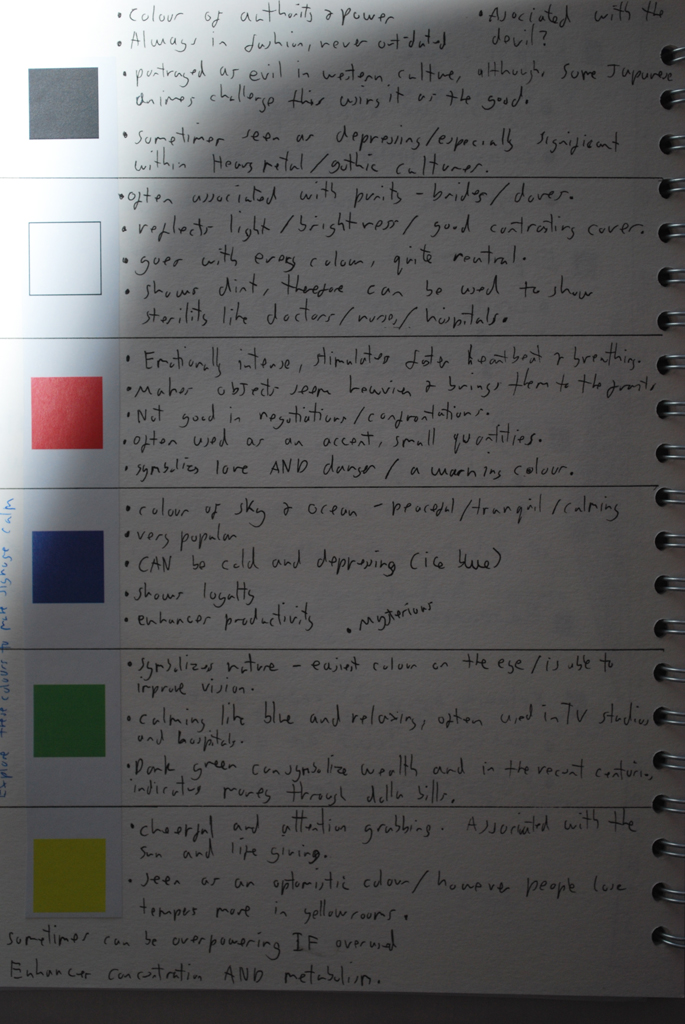 • Colour of authority & power
• Asociated with the devil?
• Always in fashion, never outdated
• portrayed as evil in western culture, although, some Japanese
animes challenge this using it as the good.
• sometimes seen as depressing/especially significant
within Heavy metal/gothic cultures.
• often associated with purity - brides/doves.
• reflects light/brightness/good contrasting cover.
• goes with every colour, quite neutral.
• shows dirt, therefore can be used to show
sterility like doctors/nurses/hospitals.
• Emotionally intense, stimulates faster heartbeat & breathing.
• Makes objects seem heavier & brings them to the front
• Not good in negotiations/confrontations.
• often used as an accent, small quantities.
• symbolizes love AND danger/a warning colour.
• colour of sky & ocean - peaceful/tranquil/calming
• very popular
• CAN be cold and depressing (ice blue)
• shows loyalty
• enhances productivity
• Mysterious
• symbolizes nature - easiest colour on the eye/is able to
improve vision.
• calming like blue and relaxing, often used in TV studios
and hospitals.
• Dark green can symbolize wealth and in the recent centuries,
indicates money through dolla bills.
• cheerful and attention grabbing. Associated with the
sun and life giving.
• seen as an optomistic colour/however people lose
tempers more in yellow rooms.
sometimes can be overpowering IF overused
Enhances concentration AND metabolism.
Explore these colours to make signage calm